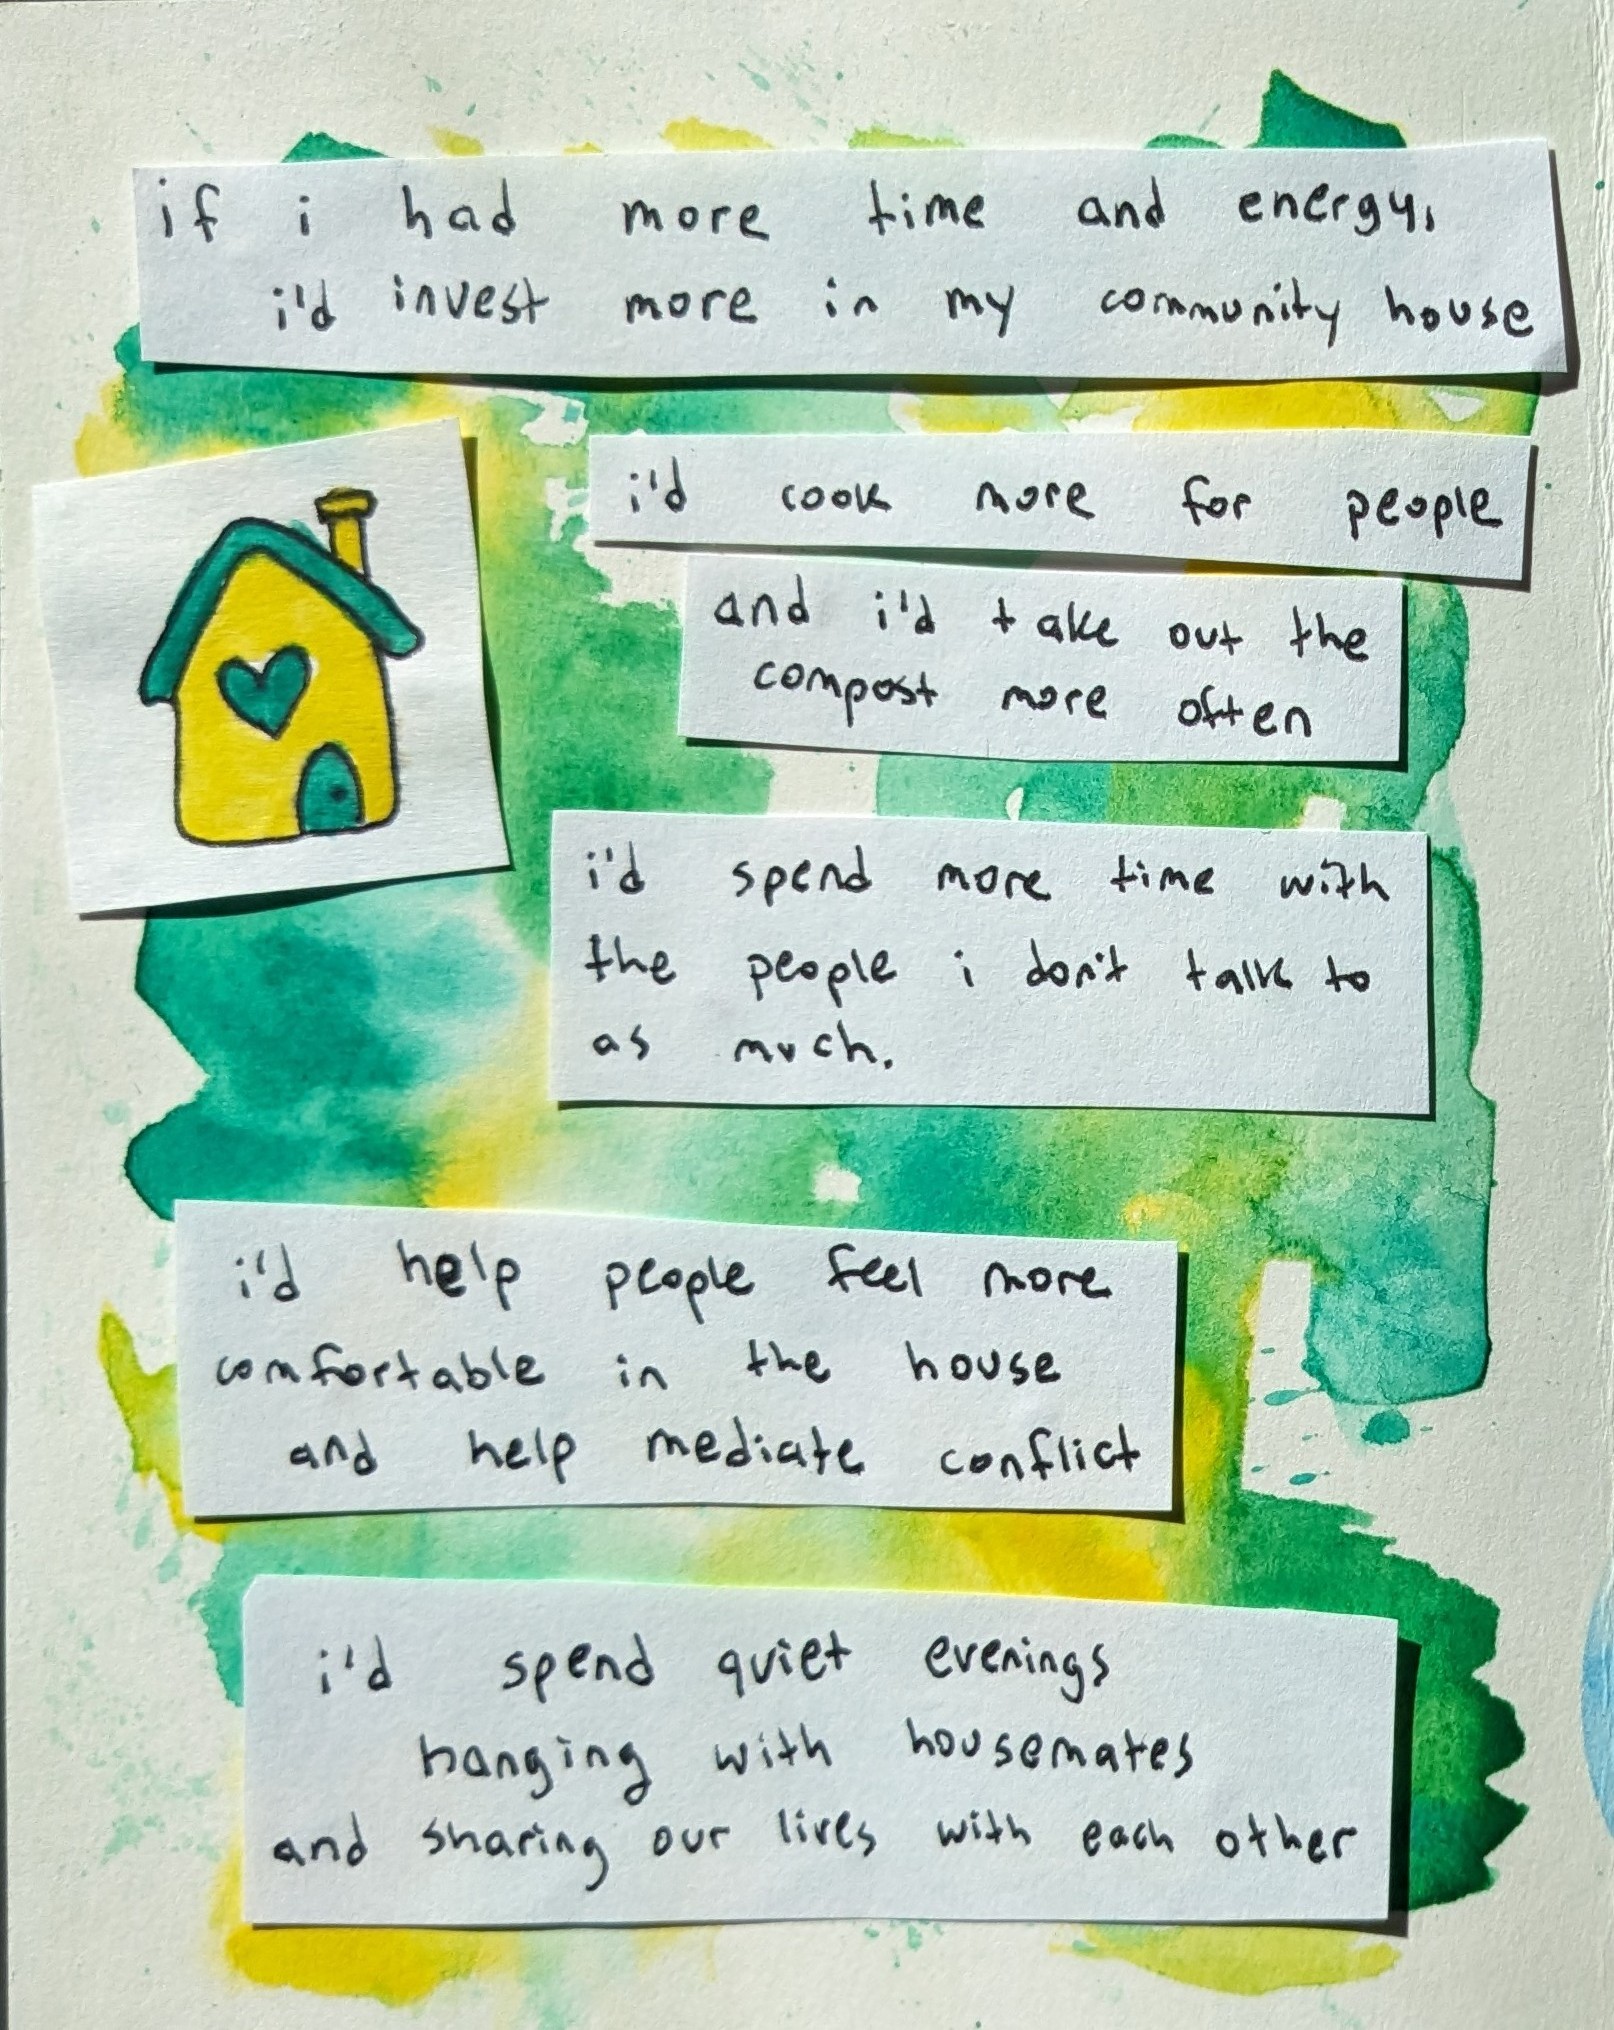 if i had more time and energy,
i'd invest more in my community house
i'd cook more for people
and i'd take out the
compost more often
i'd spend more time with
the people i don't talk to
as much.
i'd help people feel more
comfortable in the house
and help mediate conflict
i'd spend quiet evenings
hanging with housemates
and sharing our lives with each other